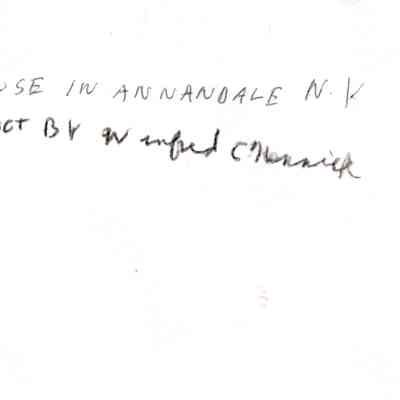 USE IN ANNANDALE N.Y
ECT BY Winfred C Hannick